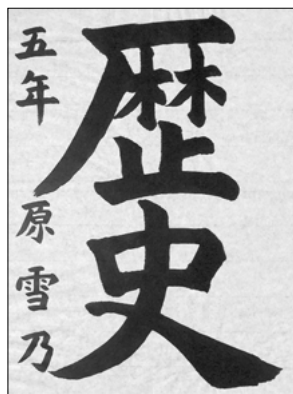 歴史
五年 原 雪乃